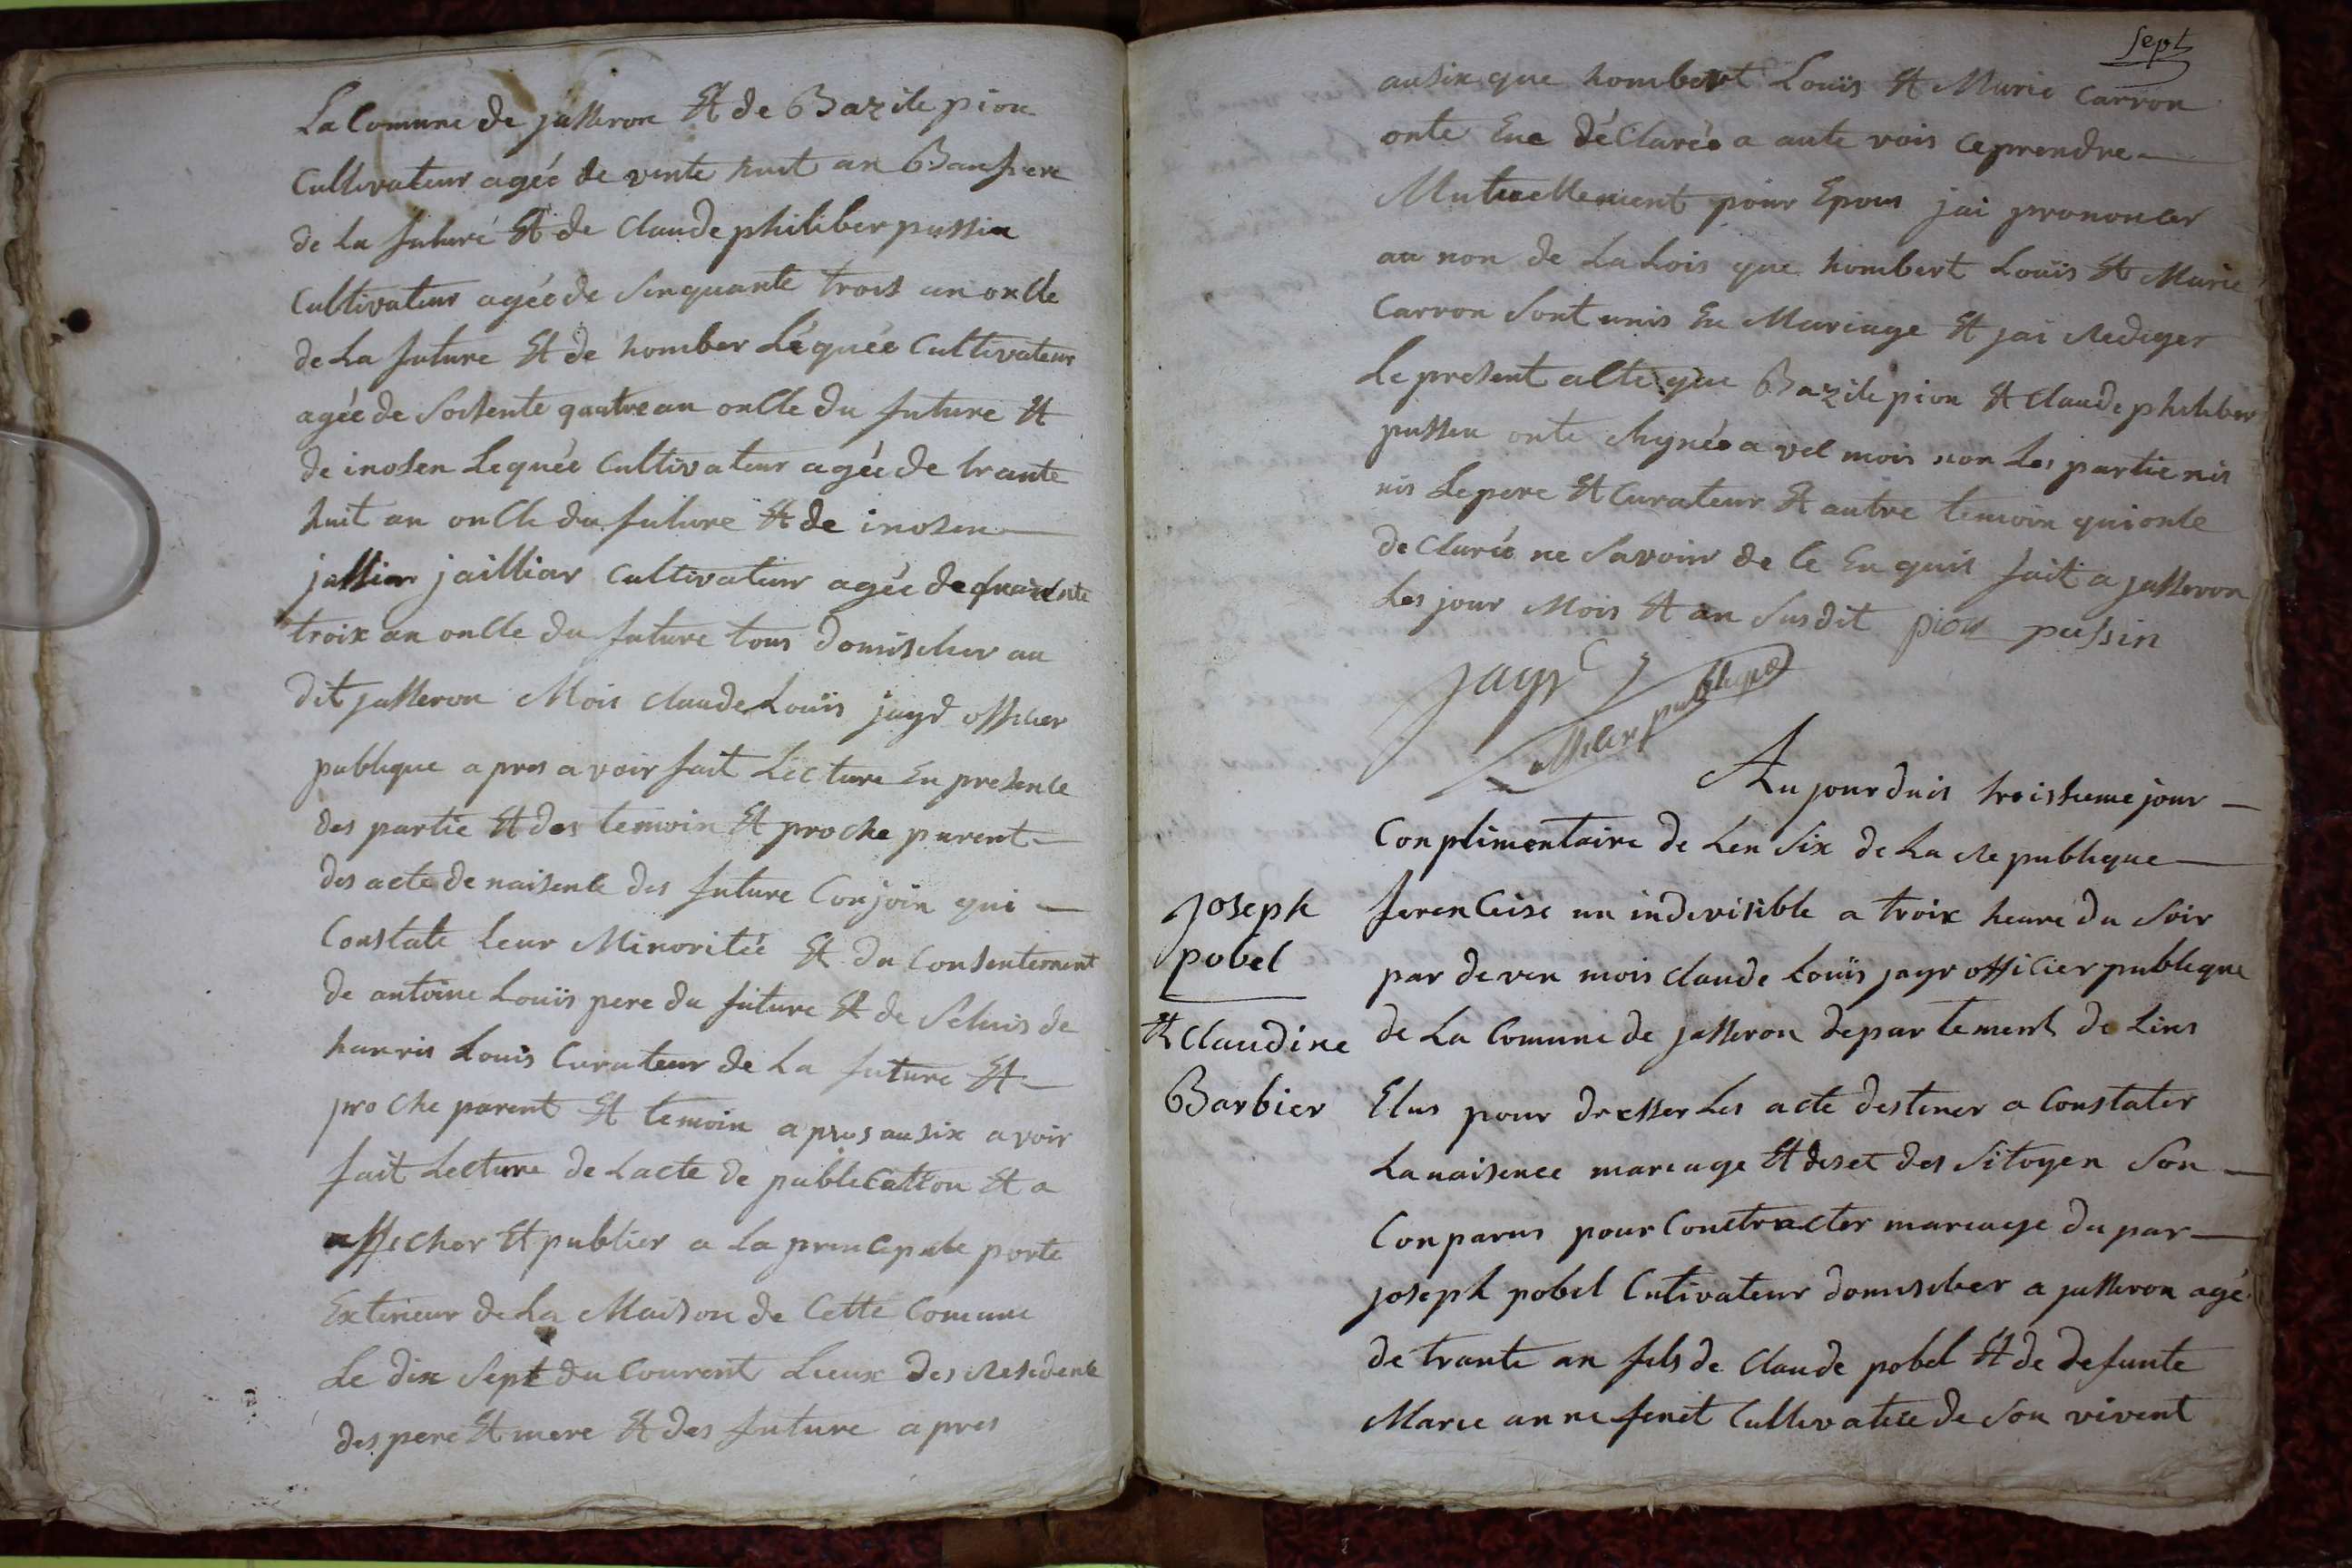 La Comune de jasseron Et de Bazile pion
Cultivateur agée de vente huit an Baufrere
de La future Et de Claude philiber pussin
Cultivateur agée de Sinquante trois an oncle
de La future Et de homber Léquée Cultivateur
agée de Soisente quatre an oncle du future Et
de inosen Lequée Cultivateur agée de trante
huit an oncle du future Et de inosen
jailliar Cultivateur agée de
troix an oncle du future tous domisilier au
dit jasseron Mois Claude Louis jayr officier
publique a pres avoir fait Lecture En presence
des partie Et des temoin Et proche parent
des acte de naisence des future Conjoin qui
Constate leur Minoritée Et du Consentement
de antoine Louïs pere du future Et de
Louis Curateur de La future Et
proche parent Et temoin a pres ausix avoir
fait Lecture de Lacte de publication Et a
afficher Et publier a La principale porte
Exterieur de La Maison de Cette Comune
Le dix Sept du Courent Lieux des Residence
des pere Et mere Et des future a pres
Sept
ausix que hombert Louïs Et Marie Carron
onte Eue déClarée a aute vois Ce prendre
Mutuellement pour Epous jai prononcer
au non de La Lois que hombert Louïs Et Marie
Carron Sont unis En Mariage Et jai Rediger
Le present acte que Bazile pion Et Claude philiber
pussin onte signée a vec mois non Les partie nis
nis Le pere Et Curateur Et autre temoin qui onte
de Clarée ne Savoir de Ce En quis fait a jasseron
Les jour Mois Et an Susdit pion pussin
jayr
officier publique
Aujourduis troisieme jour
Conplimentaire de Len Six de La Republique
ferenceise un indivisible a troix heure du Soir
par deven mois Claude Louïs jayr officier publique
de La Comune de jasseron departement de Lins
Elus pour dresser Les acte destiner a Constater
La naisence mariage Et deset des Sitoyen Son
Conparus pour Contracter mariage du par
joseph pobel Cutivateur domisilier a jasseron agé
de trante an fils de Claude pobel Et de defunte
Marie anne feret Cultivatrice de Son vivent
Joseph
pobel
Et Claudine
Barbier